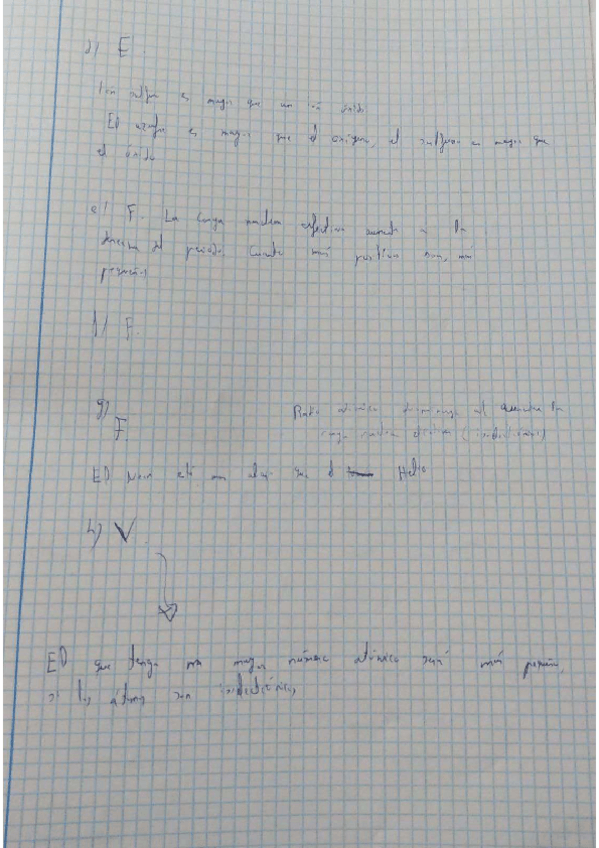 d) F.
Ion sulfuro es mayor que un ion óxido
El azufre es mayor que el oxígeno, el sulfuro es mayor que
el óxido
e) F. La carga nuclear efectiva aumenta a la
derecha del periodo. Cuanto más positiva sea, más
pequeño
f) F.
g)
F.
Radio atómico disminuye al aumentar la
carga nuclear efectiva (isoelectrónicos)
El Neón está más abajo que el Helio
h) V.
El que tenga un mayor número atómico será más pequeño,
si los átomos son isoelectrónicos